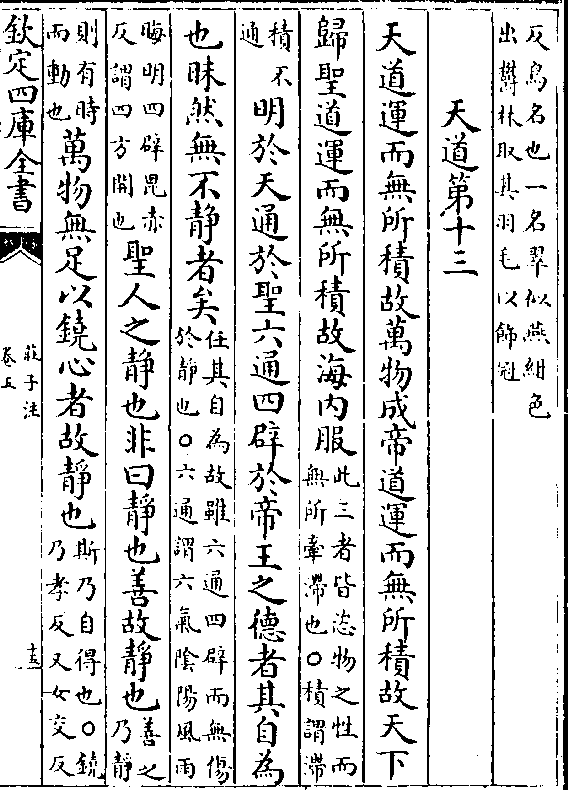 反鳥名也一名翠似燕紺色
出鬱林取其羽毛以飾冠
天道第十三
天道運而無所積故萬物成帝道運而無所積故天下
歸聖道運而無所積故海内服此三者皆恣物之性而
無所牽滯也〇積謂滯
積不
通
明於天通於聖六通四辟於帝王之德者其自為
也昧然無不静者矣任其自為故雖六通四辟而無傷
於静也〇六通謂六氣陰陽風雨
晦明四辟毘赤
反謂四方開也
聖人之静也非曰静也善故静也善之
乃静
則有時
而動也
萬物無足以鐃心者故静也斯乃自得也〇鐃
乃孝反又女交反
欽定四庫全書
莊子注
卷五
十五